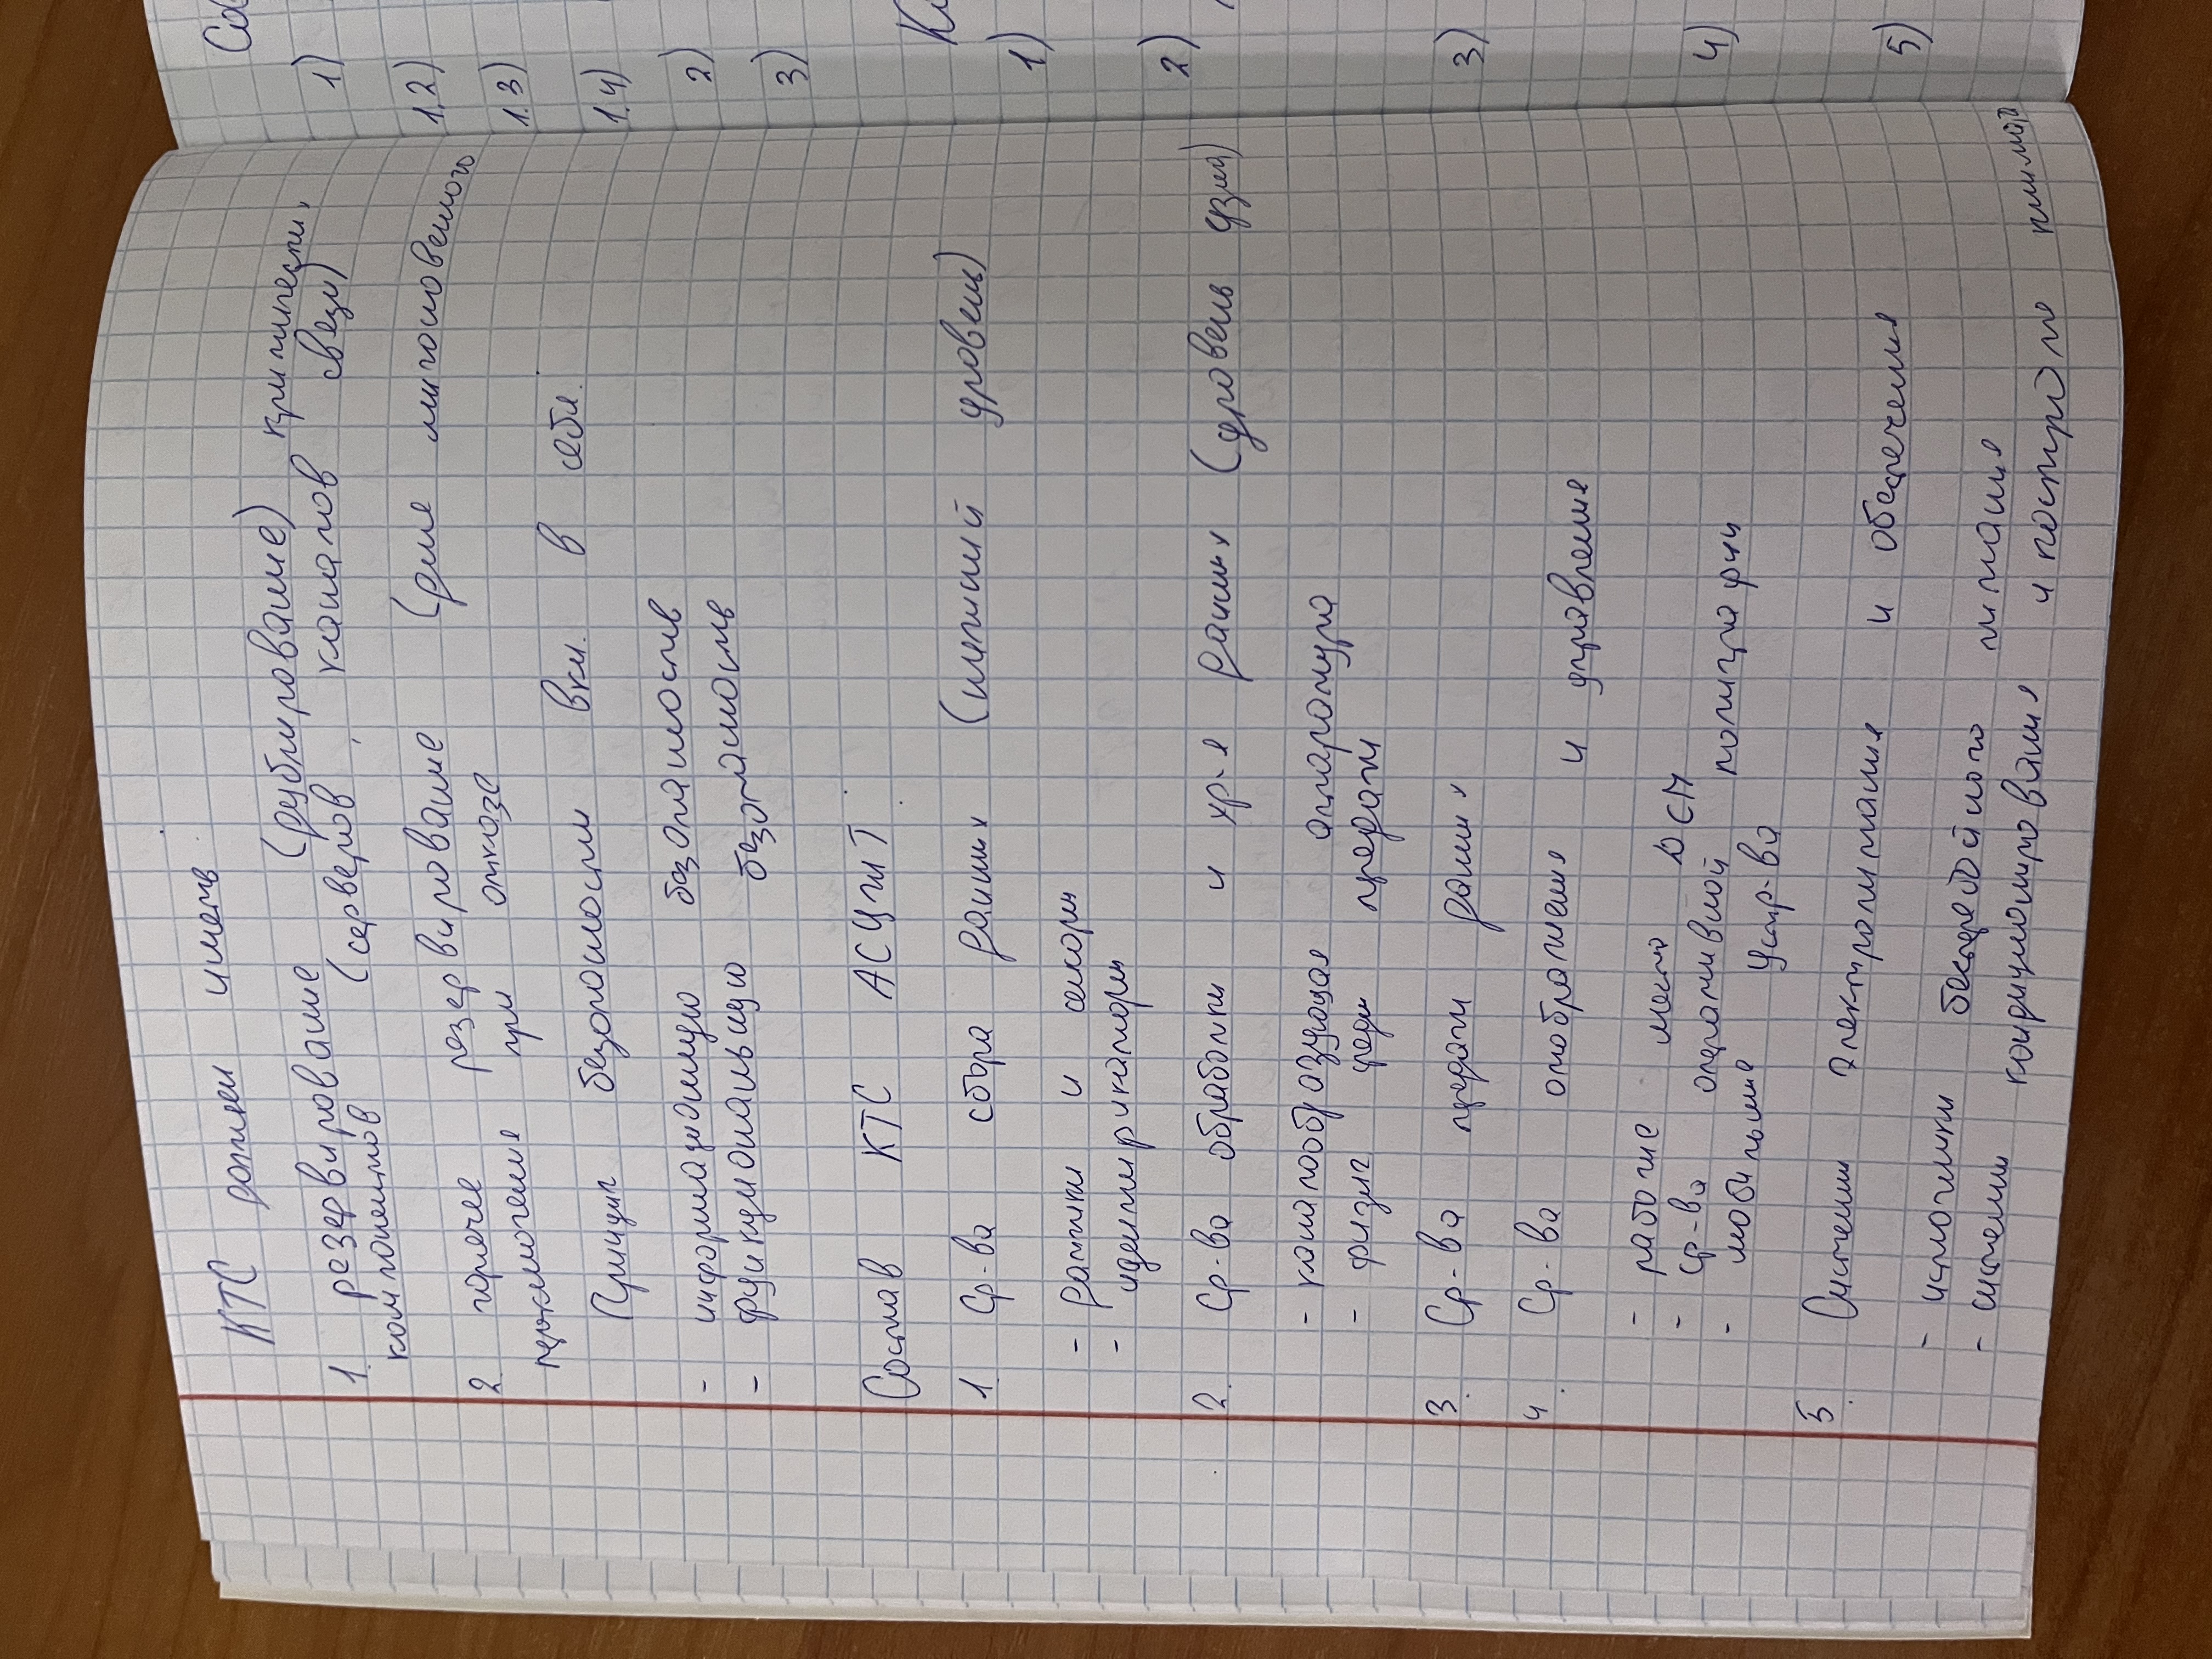 КТС должен иметь
1. резервирование (дублирование) критически,
компонентов (серверов, каналов связи)
2. горячее резервирование (для мгновенного
переключения при отказе
Принцип безопасности вкл. в себя.
- информационную безопасность
- функциональную безопасность
Состав КТС АСУ ЖТ.
1. Ср-ва сбора данных (нижний уровень)
- датчики и сенсоры
- идентификаторы
2. Ср-ва обработки и хр-я данных (уровень узла)
- каналообразующая аппаратура
- физич среды передачи
3. Ср-ва передачи данных
4. Ср-ва отображения и управления
- рабочие места ДСП
- ср-ва оперативной полиграфии
- мобильные устр-ва
5. Системы электропитания и обеспечения
- источники бесперебойного питания
- системы кондиционирования и контроля климата
Со
1)
1.2)
1.3)
1.4)
2)
3)
1)
2)
3)
4)
5)